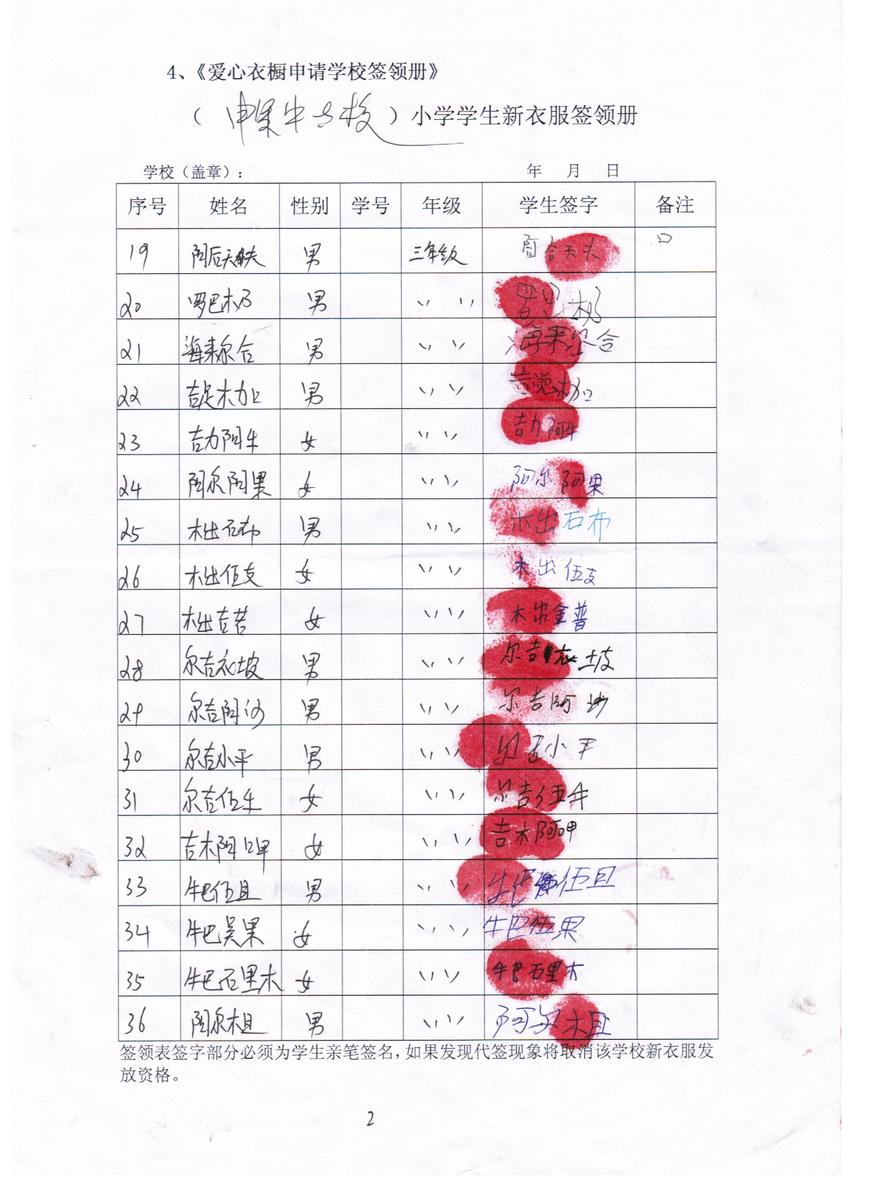 4、《爱心衣橱申请学校签领册》
（ 申果牛古校 ）小学学生新衣服签领册
学校（盖章）： 年 月 日
序号 姓名 性别 学号 年级 学生签字 备注
19 男 三年级
20 罗巴木乃 男 〃
21 海来尔合 男 〃 海来尔合
22 吉足木加 男 〃
23 吉力阿牛 女 〃 吉力阿牛
24 阿尔阿果 女 〃 阿尔阿果
25 木出石布 男 〃 木出石布
26 木出伍支 女 〃 木出伍支
27 女 〃
28 尔吉衣坡 男 〃 尔吉衣坡
29 尔吉阿沙 男 〃 尔吉阿沙
30 尔吉小平 男 〃 小平
31 尔吉伍牛 女 〃 尔吉伍牛
32 吉木阿呷 女 〃 吉木阿呷
33 牛巴伍且 男 〃 牛巴伍且
34 牛巴吴果 女 〃 牛巴伍果
35 牛巴石里木 女 〃 牛巴石里木
36 阿尔木且 男 〃 阿尔木且
签领表签字部分必须为学生亲笔签名，如果发现代签现象将取消该学校新衣服发
放资格。
2